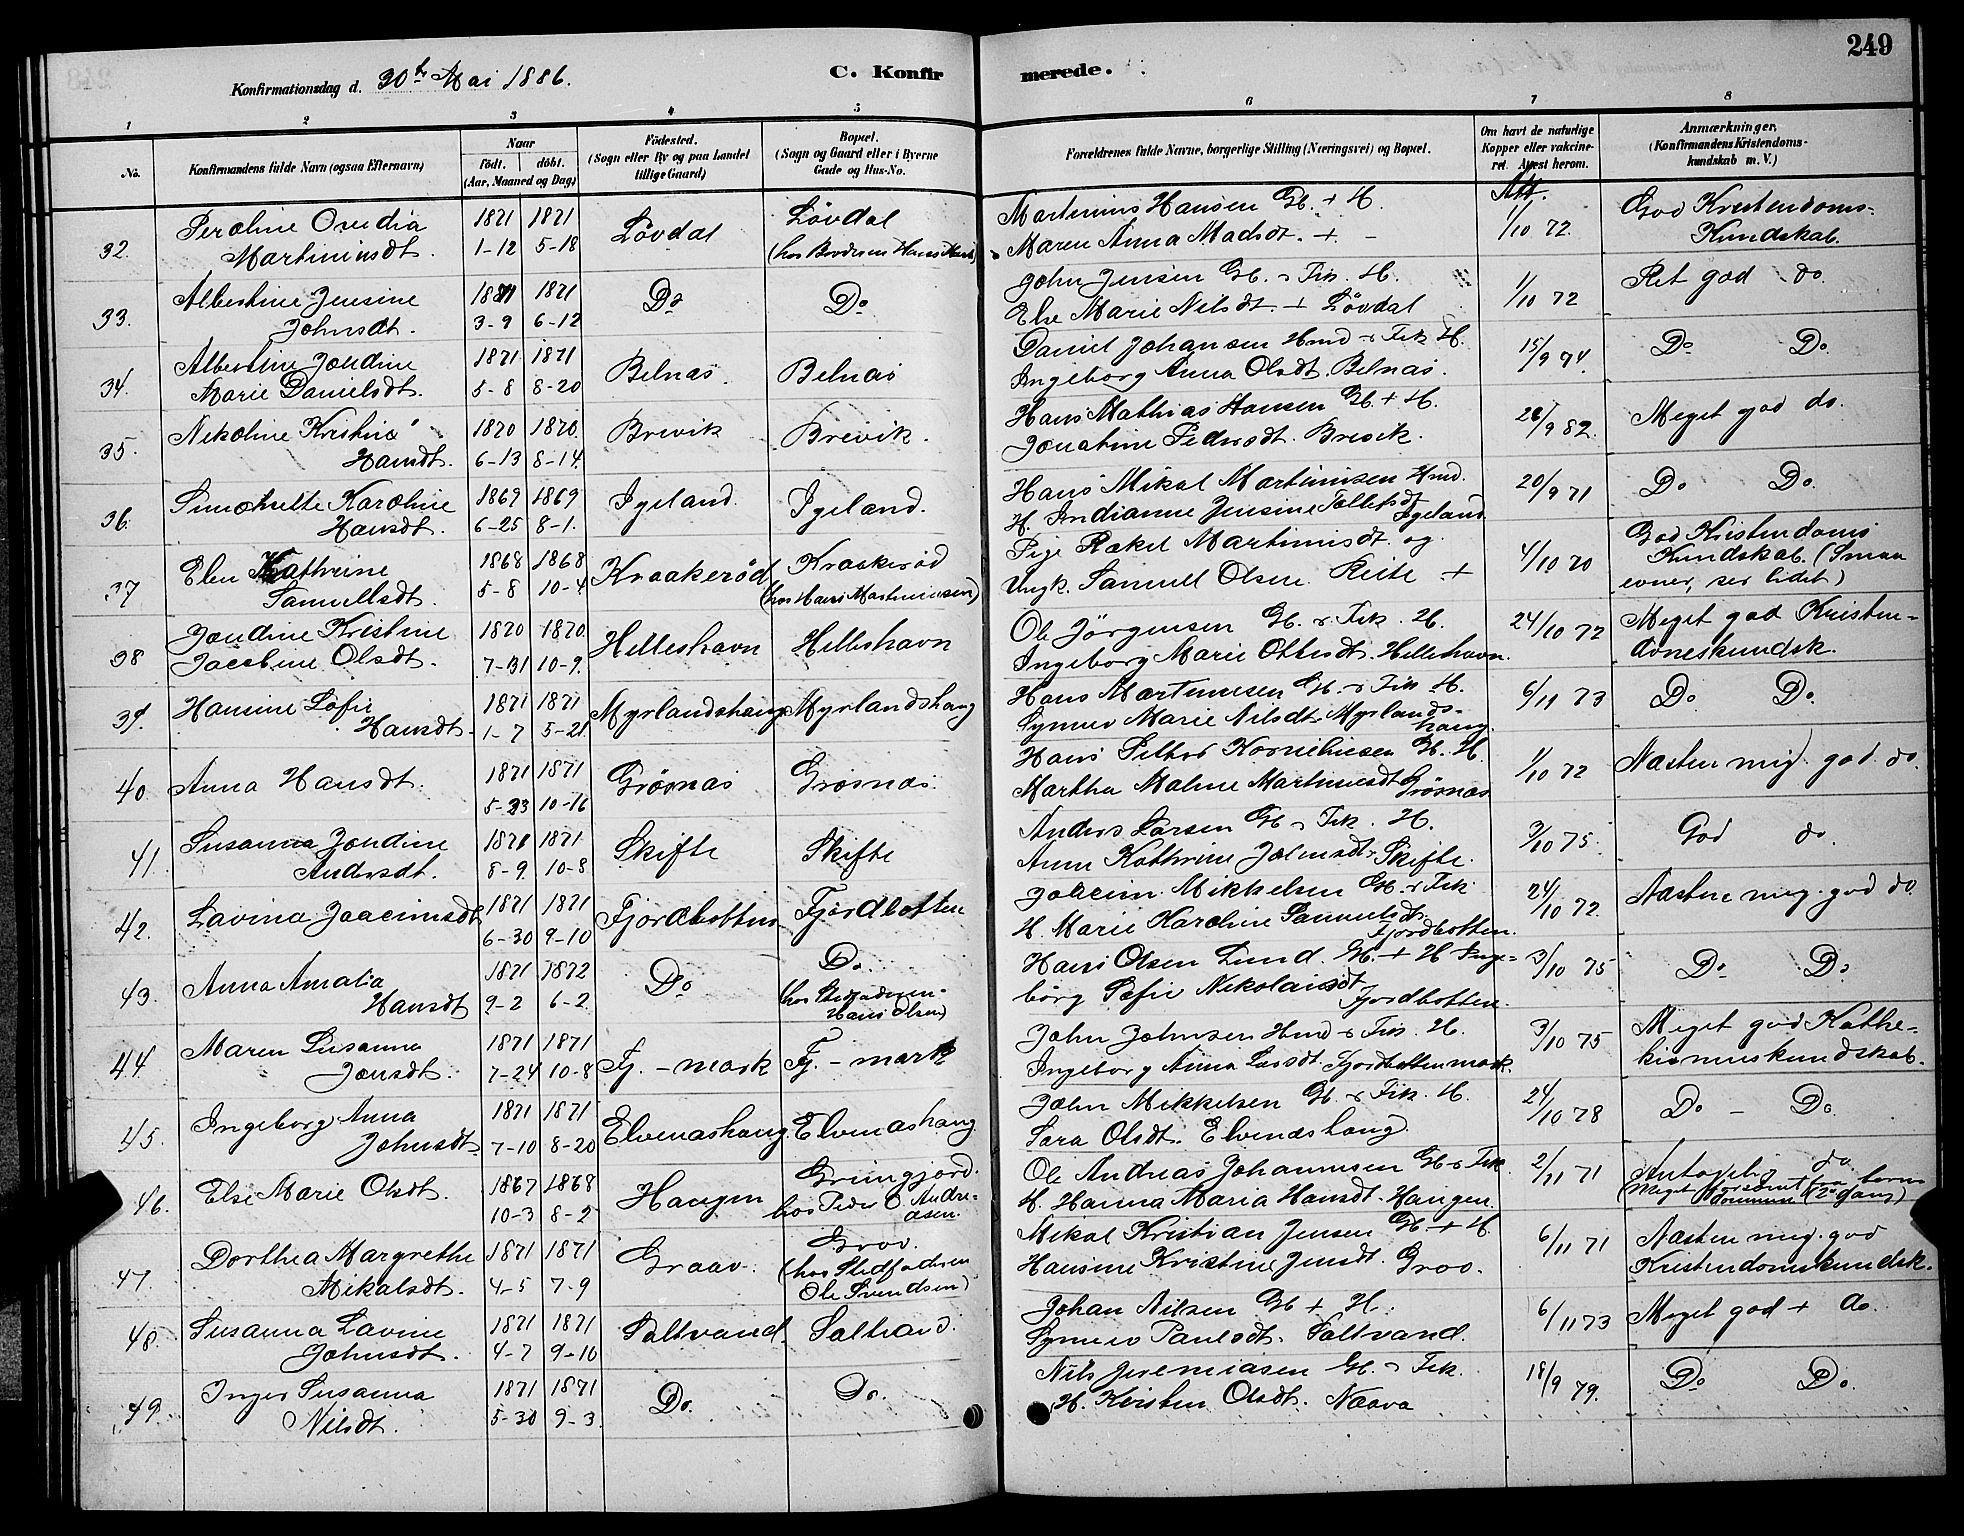 249
Konfirmationsdag d. 30te Mai 1886. C. Konfirmerede.
1 2 3 4 5 6 7 8
No. Konfirmandens fulde Navn (ogsaa Efternavn) Naar födt. döbt. (Aar, Maaned og Dag) Födested. (Sogn eller By og paa Landet tillige Gaard) Bopæl. (Sogn og Gaard eller i Byerne Gade og Hus-No. Forældrenes fulde Navne, borgerlige Stilling (Næringsvei) og Bopæl. Om havt de naturlige Kopper eller vakcineret. Attest herom. Anmærkninger. (Konfirmandens Kristendomskundskab m. V.)
Att.
32. Peroline Ovedia 1871 1871 Lövdal Lövdal Martinius Hansen G. + H. 1/10 72. God Kristendoms-
Martiniusdt. 1-12 5-18 (hos Broderen Hans Mart.) Maren Anna Madsdt. + - Kundskab.
33. Albertine Jensine 1871 1871 Do Do John Jensen G. & Fisk. H. 1/10 72 Ret god do.
Johnsdt. 3-9 6-12 Else Marie Nilsdt. + Lövdal
34. Albertine Jondine 1871 1871 Belnæs. Belnæs Daniel Johansen Hmd & Fisk H. 15/9 74. Do Do.
Marie Danielsdt. 5-8 8-20 Ingeborg Anna Olsdt. Belnæs.
35. Nikoline Kristine 1870 1870. Brevik Brevik. Hans Mathias Hansen G. + H. 28/9 82. Meget god do.
Hansdt. 6-13 8-14. Jonathine Pedersdt. Brevik.
36. Karoline 1869 1869 Igeland. Igeland. Hans Mikal Martinisen Hmd. 20/9 71 Do Do.
Hansdt. 6-25 8-1. H. Indianne Jensine Tollefsdt Igeland
37 Elen Kathrine 1868 1868 Kraakeröd Kraakeröd Pige Rakel Martinisdt. og 4/10 70 God Kristendoms
Samuelsdt. 5-8 10-4 (hos Hans Martinussen) Ungk. Samuel Olsen Reite + Kundskab. (Smaa evner, ser lidet)
38 Jondine Kristine 1870 1870. Helleshavn Helleshavn Ole Jörgensen G. & Fisk. H. 24/10 72 Meget god Kristen-
Jacobine Olsdt. 7-31 10-9. Ingeborg Marie Ottesdt. Helleshavn. domskundsk.
39. Hansine Sofie 1871 1871 Myrlandshaug Myrlandshaug Hans Martinusen G. & Fisk H. 6/11 73 Do. Do.
Hansdt. 1-7 5-21 Synnev Marie Nilsdt. Myrlands-haug.
40. Anna Hansdt. 1871 1871 Grösnæs Grösnæs. Hans Petter Korneliusen G. H. 1/10 72 Næsten meg. god do.
5-23 10-16 Martha Malene Martinusdt Grösnæs
41. Susanna Jondine 1871 1871 Skifte Skifte Anders Larsen G. & Fisk. H. 3/10 75. God do.
Andersdt. 8-9 10-8 Anne Kathrine Johnsdt. Skifte.
42. Lavina Joacimsdt 1871 1871 Fjordbotten Fjordbotten Joacim Mikkelsen G. & Fisk. 24/10 72. Næsten meg. god do.
6-30 9-10 H. Marie Karoline Samuelsdt. Fjordbotten.
43. Anna Amalia 1871 1872 Do Do. Hans Olsen Lund. G. + H Inge- 3/10 75 Do Do
Hansdt 9-2 6-2 (hos Stedfaderen Hans Olsen) börg Sofie Nikolaisdt. Fjordbotten.
44. Maren Susanna 1871 1871 Fj. - mark Fj. - mark John Johnsen Hmd & Fisk. H. 3/10 75 Meget god Kathe-
Jonsdt. 7-24 10-8 Ingeborg Anna Larsdt. Fjordbottenmark. kismuskundskab.
45. Ingeborg Anna 1871 1871 Elvenæshaug. Elvenæshaug John Mikkelsen G. & Fisk. H. 24/10 78 Do - Do.
Johnsdt. 7-10 8-20 Sara Olsdt. Elvenæshaug.
46. Else Marie Olsdt. 1867 1868 Haugen Grungfjord. Ole Andreas Johannesen G. & Fisk 2/11 71 Antagelig do
10-3 8-2 hos Peder O. Andreasen. H. Hanna Maria Hansdt. Haugen. (Meget forsömt fra barns (2den Gang)
47. Dorthea Margrethe 1871 1871 Graav. Grov. Mikal Kristian Jensen G. + H. 6/11 71 Næsten meg. god
Mikalsdt. 4-5 7-9 (hos Stedfaderen Ole Svendsen) Hansine Kristine Jensdt. Grov. Kristendomskundsk.
48. Susanna Lavine 1871 1871 Saltvand Saltvand. Johan Nilsen G. + H. 6/11 73 Meget god + do.
Johnsdt. 4-7 9-10 Synnev Paulsdt. Saltvand.
49. Inger Susanna 1871 1871 Do. Do. Nils Jeremiasen G. & Fisk. 18/9 79. Do Do.
Nilsdt. 5-30 9-3 H. Kirsten Olsdt. Naava